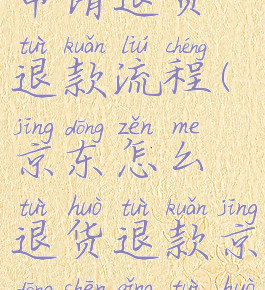 申请退货
tuì kuǎn liú chéng
退款流程(
jīng dōng zěn me
京东怎么
tuì huò tuì kuǎn jīng
退货退款京
dōng shēn qǐng tuì huò